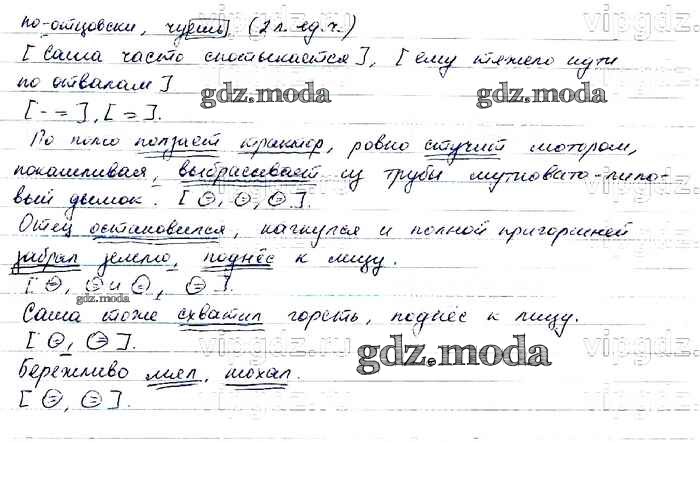 по-отцовски, чуешь, (2 л. ед.ч.)
[Саша часто спотыкается], [ему тяжело идти
по отвалам]
[- =], [=].
По полю ползает трактор, ровно стучит мотором,
покашливая, выбрасывает из трубы мутновато-лило-
вый дымок. [⊜, ⊜, ⊜].
Отец остановился, нагнулся и полной пригоршней
забрал землю, поднёс к лицу.
[⊜, ⊜ и ⊜, ⊜].
Саша тоже схватил горсть, поднёс к лицу.
[⊜, ⊜].
Бережливо мял, нюхал.
[⊜, ⊜].
gdz.moda
gdz.moda
gdz.moda
gdz.moda
gdz.moda
vipgdz
vipgdz